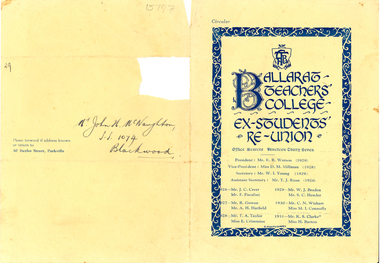 15797
29
Mr John H. McNaughton,
S.S. 1074
Blackwood
Please forward if address known
or return to
Street, Parkville
Circular
BALLARAT
TEACHERS'
COLLEGE
EX-STUDENTS'
RE-UNION
Office Bearers Nineteen Thirty Seven
President: Mr. S. E. Watson (1929)
Vice-President: Miss D. M. Hillman (1928)
Secretary: Mr. W. I. Young (1929)
Assistant Secretary: Mr. T. J. Ryan (1926)
Mr. J. C. Croft
Mr. F.
1929 Mr. W. J.
Mr. S. C.
Mr. R.
Mr. A. H. Hatfield
1930 Mr. C. N.
Miss M. I. Connolly
Mr. T. A. Taylor
Miss E.
1931 Mr. K. S. Clarke
Miss H. Barton